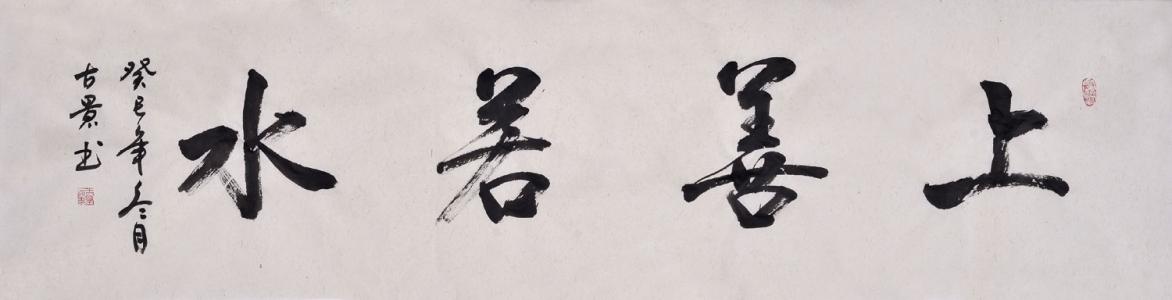 上善若水
癸巳年冬月
古景书